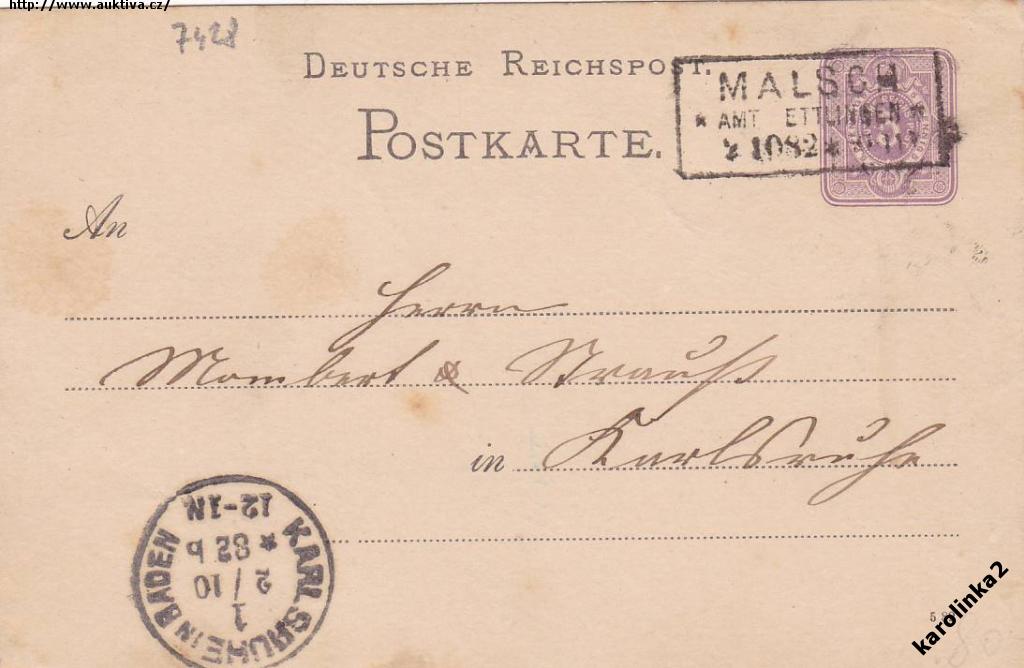 http://www.auktiva.cz/
7428
DEUTSCHE REICHSPOST.
POSTKARTE.
MALSCH
* AMT ETTLINGEN *
2 1082 *
An
Herrn
Mombert & Strauß
in Karlsruhe
KARLSRUHE IN BADEN
1
2/10
* 82 b
12-1N.
karolinka2